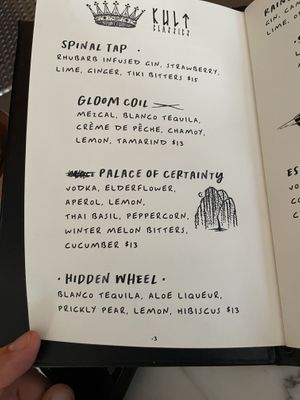 KULT
CLASSICS
SPINAL TAP ·
RHUBARB INFUSED GIN, STRAWBERRY,
LIME, GINGER, TIKI BITTERS $15
GLOOM COIL
MEZCAL, BLANCO TEQUILA,
CRÈME DE PÊCHE, CHAMOY,
LEMON, TAMARIND $13
PALACE OF CERTAINTY
VODKA, ELDERFLOWER,
APEROL, LEMON,
THAI BASIL, PEPPERCORN,
WINTER MELON BITTERS,
CUCUMBER $13
· HIDDEN WHEEL ·
BLANCO TEQUILA, ALOE LIQUEUR,
PRICKLY PEAR, LEMON, HIBISCUS $13
-3